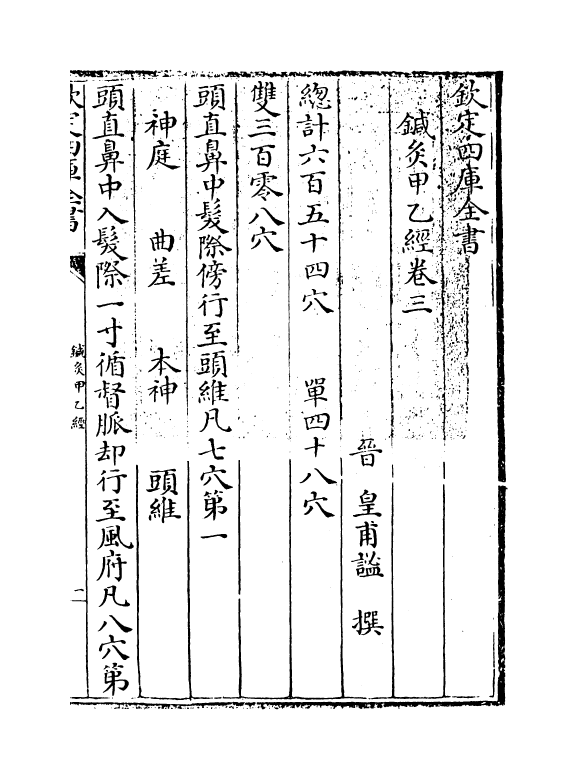 欽定四庫全書
鍼灸甲乙經卷三
晉 皇甫謐 撰
總計六百五十四穴 單四十八穴
雙三百零八穴
頭直鼻中髮際傍行至頭維凡七穴第一
神庭 曲差 本神 頭維
頭直鼻中入髮際一寸循督脈却行至風府凡八穴第
欽定四庫全書
鍼灸甲乙經
二